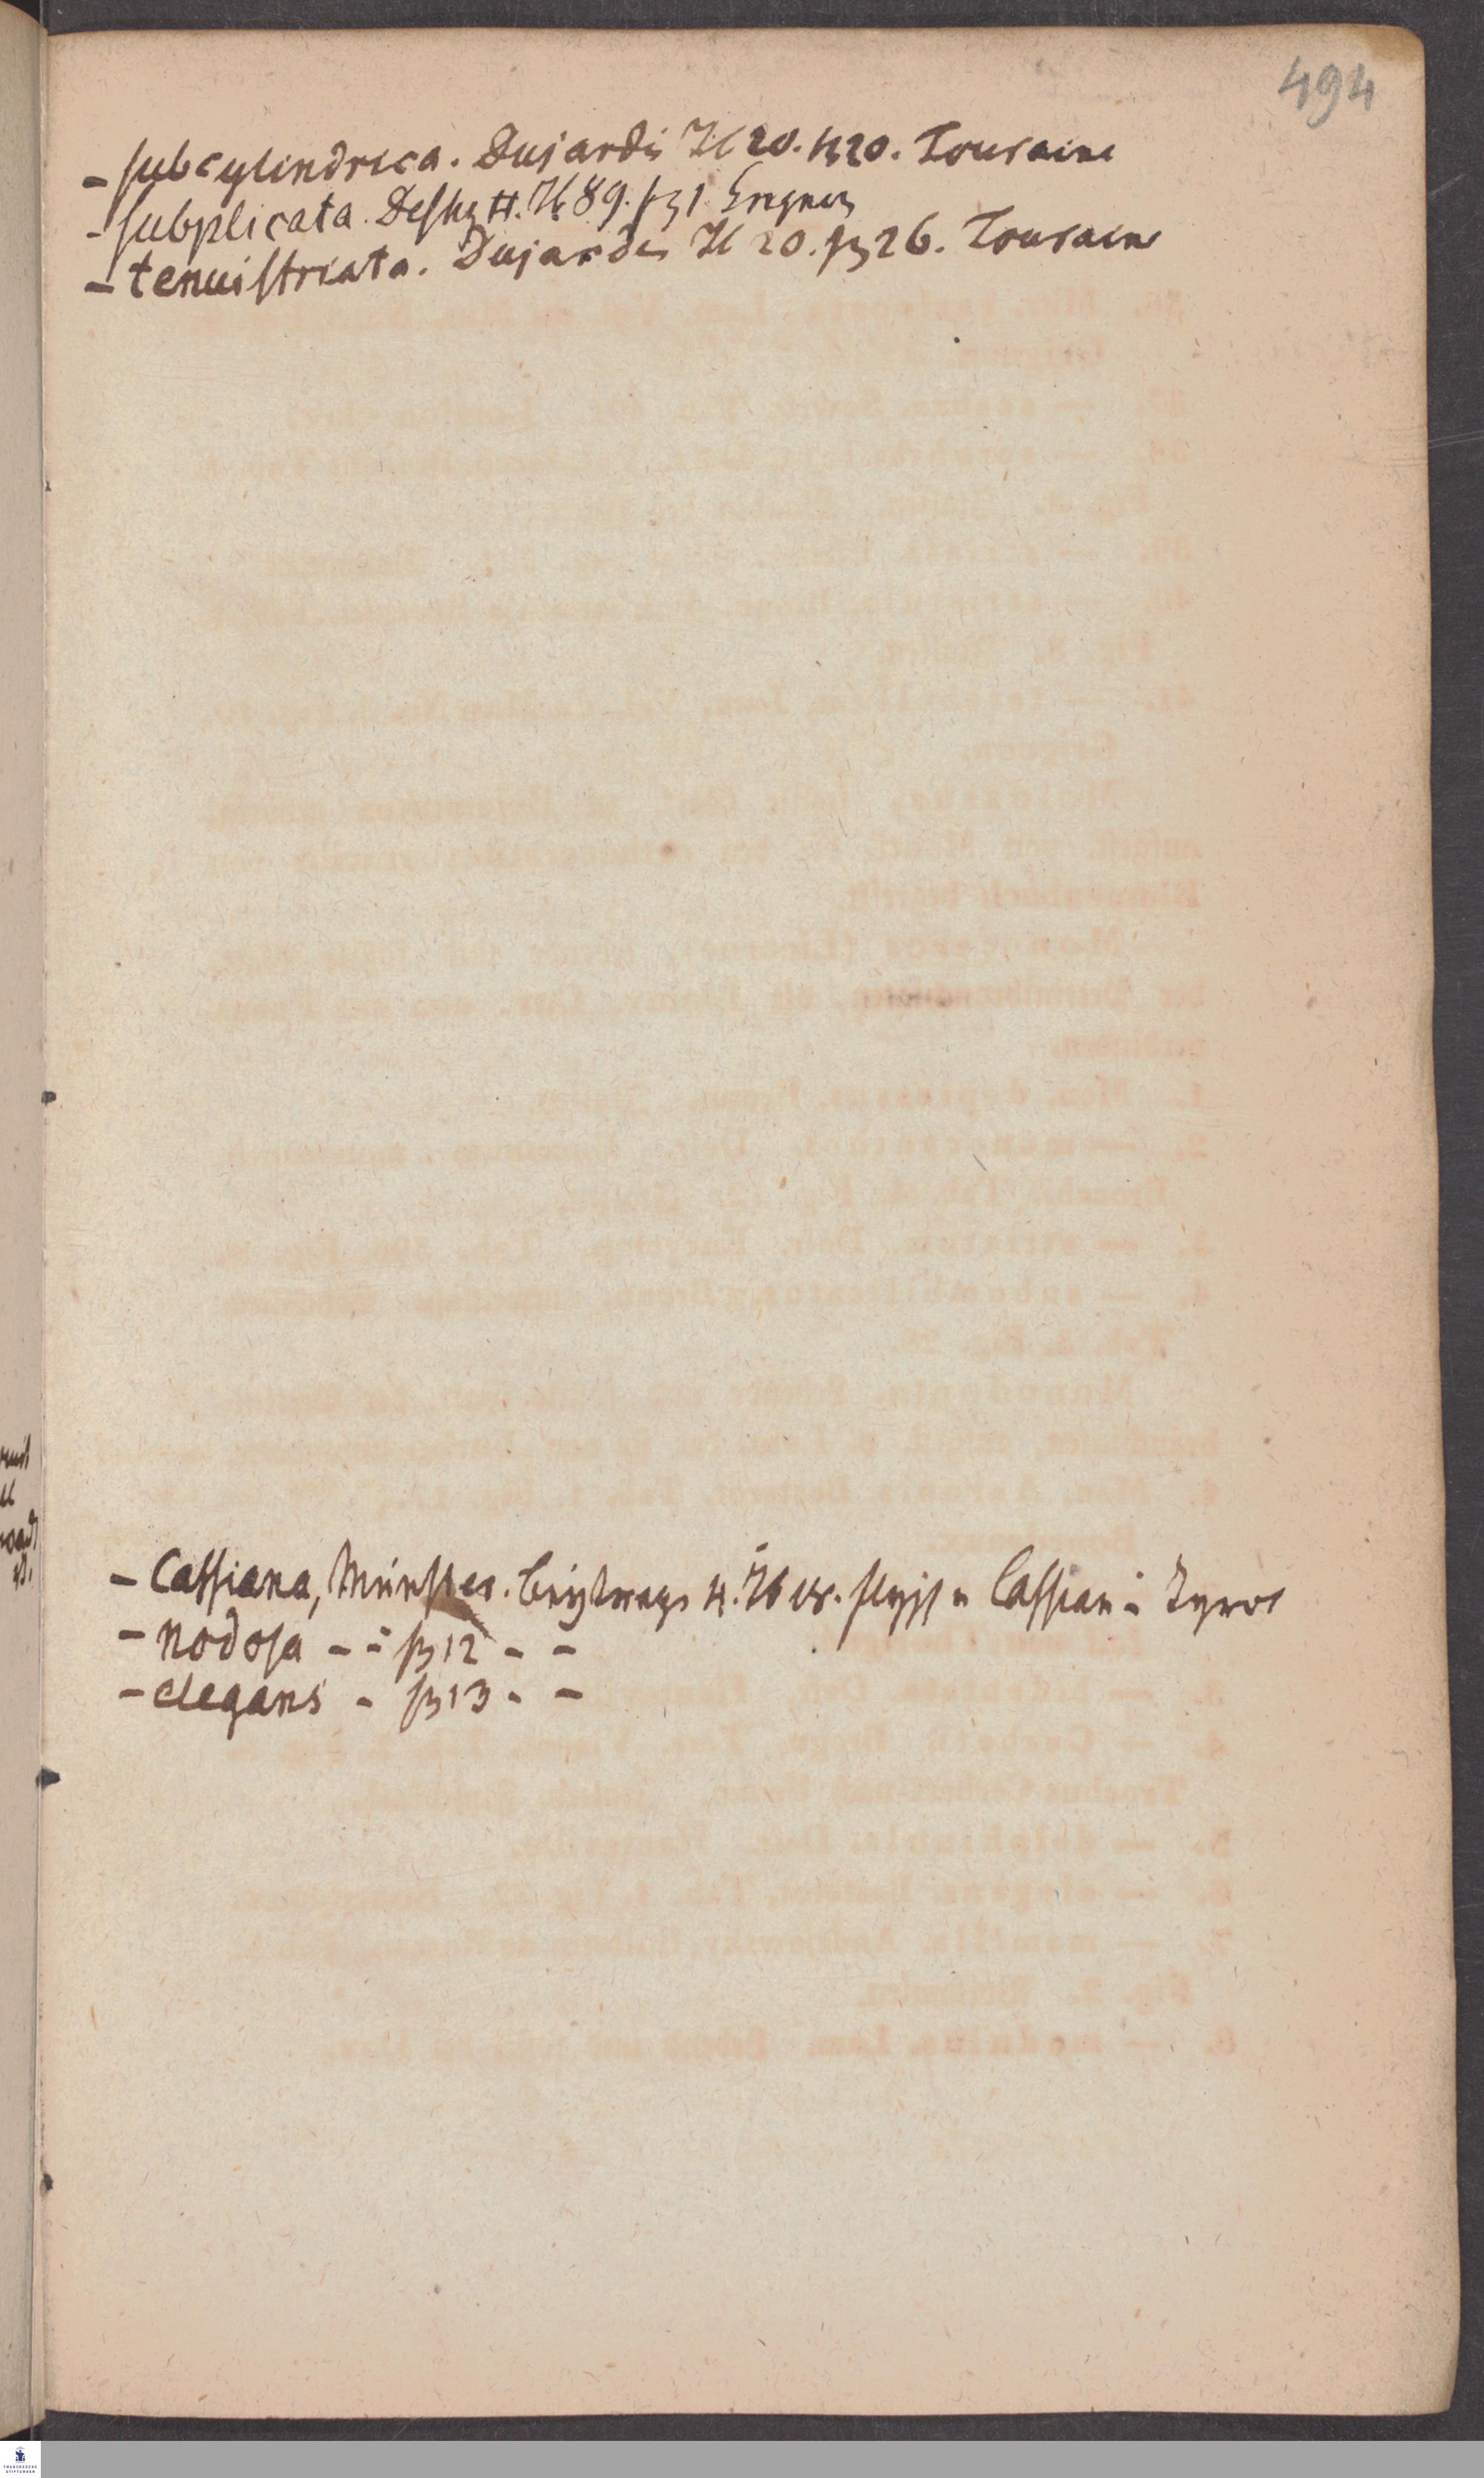 494
- subcylindrica. Dujardin Tf 20. fig 20. Touraine
- subplicata. Desh. II. Tf 89. fig 1 Grignon
- tenuistriata. Dujardin Tf 20. fig 26. Touraine
- Cassiana, Münster. Beytraege 4. Tf Cassian in Tyrol
- nodosa - - fig 12 - -
- elegans - fig 13 - -